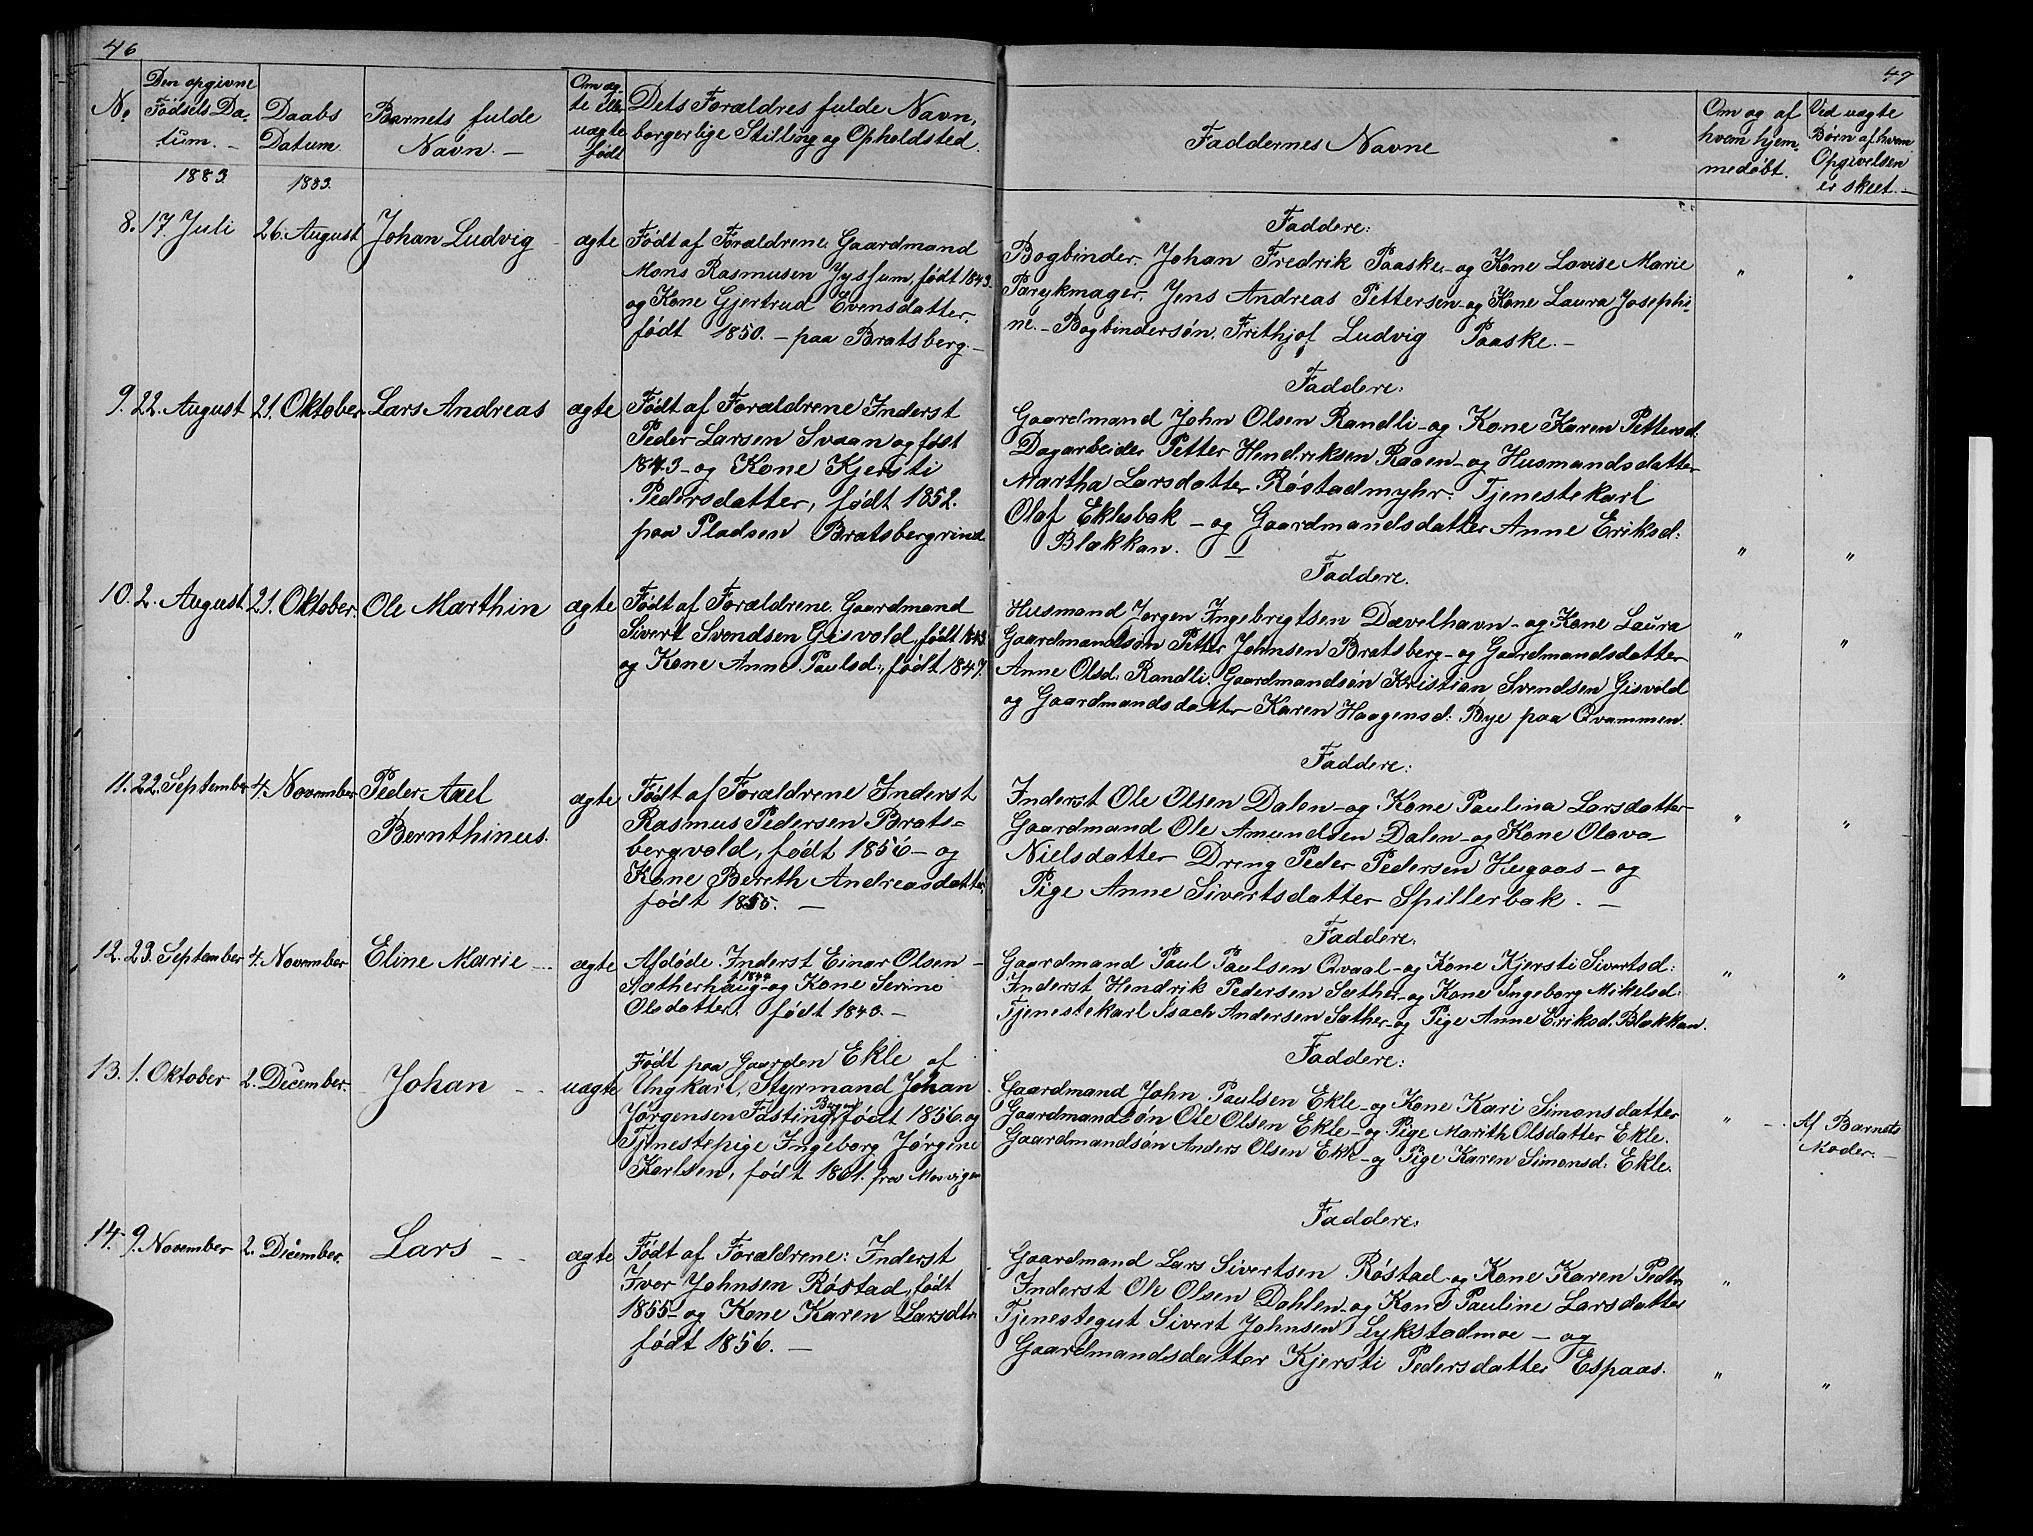 46
No
Den opgivne
Fødsels Da-
tum. -
Daabs
Datum.
Barnets fulde
Navn. -
Om æg-
te eller
uægte
født
Dets Forældres fulde Navn,
borgerlige Stilling og Opholdsted.
1883.
1883.
8. 17. Juli 26. August Johan Ludvig - ægte
Født af Forældrene Gaardmand
Mons Rasmusen Jyssum, født 1843.
og Kone Gjertrud Evensdatter,
født 1850. - paa Bratsberg. -
9. 22. August 21. Oktober Lars Andreas ægte
Født af Forældrene Inderst
Peder Larsen Svaan og født
1843 - og Kone Kjersti
Pedersdatter, født 1852.
paa Pladsen Bratsbergrind.
10. 2. August 21. Oktober. Ole Marthin ægte
Født af Forældrene. Gaardmand
Sivert Svendsen Gisvold, født 1843
og Kone Anne Paulsd:, født 1847.
11. 22. September 4. November Peder Axel
Bernthinus. ægte
Født af Forældrene Inderst
Rasmus Pedersen Brats=
bergvold, født 1856 - og
Kone Bereth Andreasdatter,
født 1855. -
12. 23. September 4. November Eline Marie - ægte
Afdøde Inderst Einar Olsen -
Sætherhaug - og Kone Serine
Olsdatter, født 1843. -
13. 1. Oktober 2. December. Johan - uægte
Født paa Gaarden Ekle af
Ungkarl, Styrmand Johan
Jørgensen Fasting, Bergen født 1856. og
Tjenestepige Ingeborg Jørgine
Karlsen, født 1861. fra Mosvigen
14. 9. November 2. December. Lars - ægte
Født af Forældrene: Inderst
Iver Johnsen Røstad, født
1855 - og Kone Karen Larsdtr.
født 1856. -
47
Faddernes Navne
Om og af
hvem hjem-
medøbt.
Ved uægte
Børn af hvem
Opgivelsen
er skeet. -
Faddere:
Bogbinder. Johan Fredrik Paaske - og Kone Lovise Marie
Parykmager. Jens Andreas Pettersen - og Kone Laura Josephi-
ne. - Bogbindersøn, Frithjof Ludvig Paaske. -
" "
Faddere:
Gaardmand John Olsen Randli - og Kone Karen Pettersd:
Dagarbeider Petter Hendriksen Raaen - og Husmandsdatter
Martha Larsdatter Røstadmyhr. Tjenestekarl
Olaf Eklesbak - og Gaardmandsdatter Anne Eriksd:
Blækkan. -
" "
Faddere.
Husmand Jørgen Ingebrigtsen Dævelhavn - og Kone Laura
Gaardmandsøn Petter Johnsen Bratsberg - og Gaardmandsdatter
Anne Olsd: Randli. Gaardmandsøn Kristian Svendsen Gisvold
og Gaardmandsdatter Karen Haagensd: Bye paa Qvammen.
" "
Faddere:
Inderst Ole Olsen Dalen - og Kone Paulina Larsdatter
Gaardmand Ole Amundsen Dalen - og Kone Olava
Nielsdatter Dreng Peder Pedersen Hugaas - og
Pige Anne Sivertsdatter Spillerbak. -
" "
Faddere.
Gaardmand Paul Paulsen Qvaal - og Kone Kjersti Sivertsd:
Inderst Hendrik Pedersen Sæther - og Kone Ingeborg Mikelsd:
Tjenestekarl Isach Andersen Sæther - og Pige Anne Eriksd. Blækkan.
" "
Faddere:
Gaardmand John Paulsen Ekle - og Kone Kari Simonsdatter
Gaardmandsøn Ole Olsen Ekle - og Pige Marith Olsdatter Ekle.
Gaardmandsøn Anders Olsen Ekle - og Pige Karen Simonsd: Ekle.
" - Af Barnets
Moder. -
Faddere:
Gaardmand Lars Sivertsen Røstad - og Kone Karen Pedtr
Inderst Ole Olsen Dahlen - og Kone Pauline Larsdatter
Tjenestegut Sivert Johnsen Lykstadmoe - og
Gaardmandsdatter Kjersti Pedersdatter Espaas.
" " "